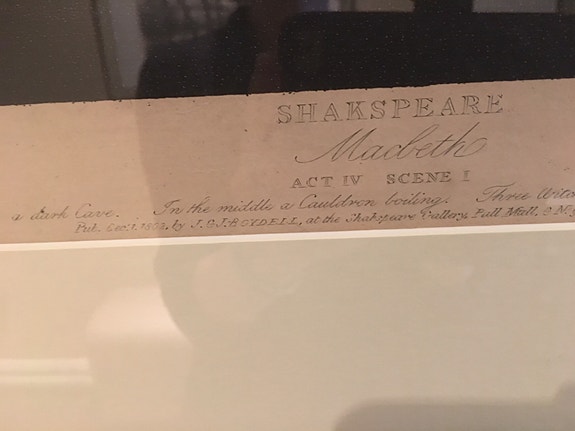 SHAKSPEARE
Macbeth
ACT IV SCENE I
a dark Cave. In the middle a Cauldron boiling. Three
Pub. Dec. 1, 1803, by J. & J. BOYDELL, at the Shakspeare Gallery, Pall Mall, &